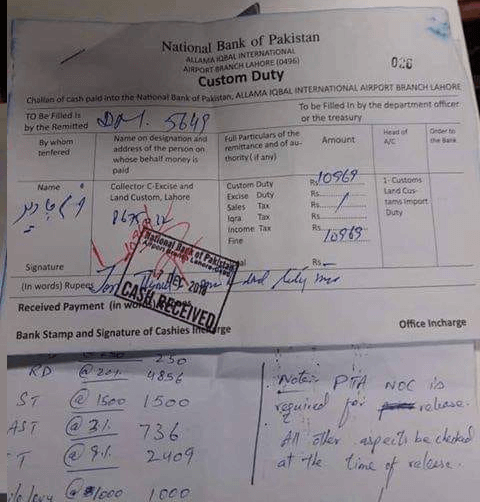 National Bank of Pakistan
ALLAMA IQBAL INTERNATIONAL
AIRPORT BRANCH LAHORE (0496)
026
Custom Duty
Challan of cash paid into the National Bank of Pakistan, ALLAMA IQBAL INTERNATIONAL AIRPORT BRANCH LAHORE
TO Be Filled is
by the Remitted
5649
To be Filled In by the department officer
or the treasury
By whom
tenfered
Name on designation and
address of the person on
whose behalf money is
paid
Full Particulars of the
remittance and of au-
thority ( if any)
Amount
Head of
A/C
Order to
the Bank
Name
Collector C-Excise and
Land Custom, Lahore
Custom Duty
Excise Duty
Sales Tax
Iqra Tax
Income Tax
Fine
Rs. 10969
Rs.
Rs.
Rs.
Rs.
10969
1- Customs
Land Cus-
tams Import
Duty
National Bank of Pakistan
DEC 2018
CASH RECEIVED
Signature
(In words) Rupees
Received Payment (in words) Rupees
Bank Stamp and Signature of Cashies Incharge
Office Incharge
250
RD @ 20% 4856
ST @ 1500 1500
AST @ 3% 736
T @ 9% 2409
@ 1000 1000
Note: PTA NOC is
required for release.
All other aspects be checked
at the time of release.